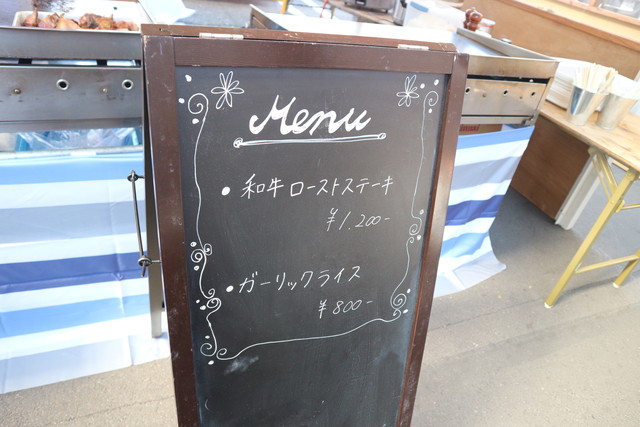 Menu
• 和牛ローストステーキ
¥1,200-
• ガーリックライス
¥800-